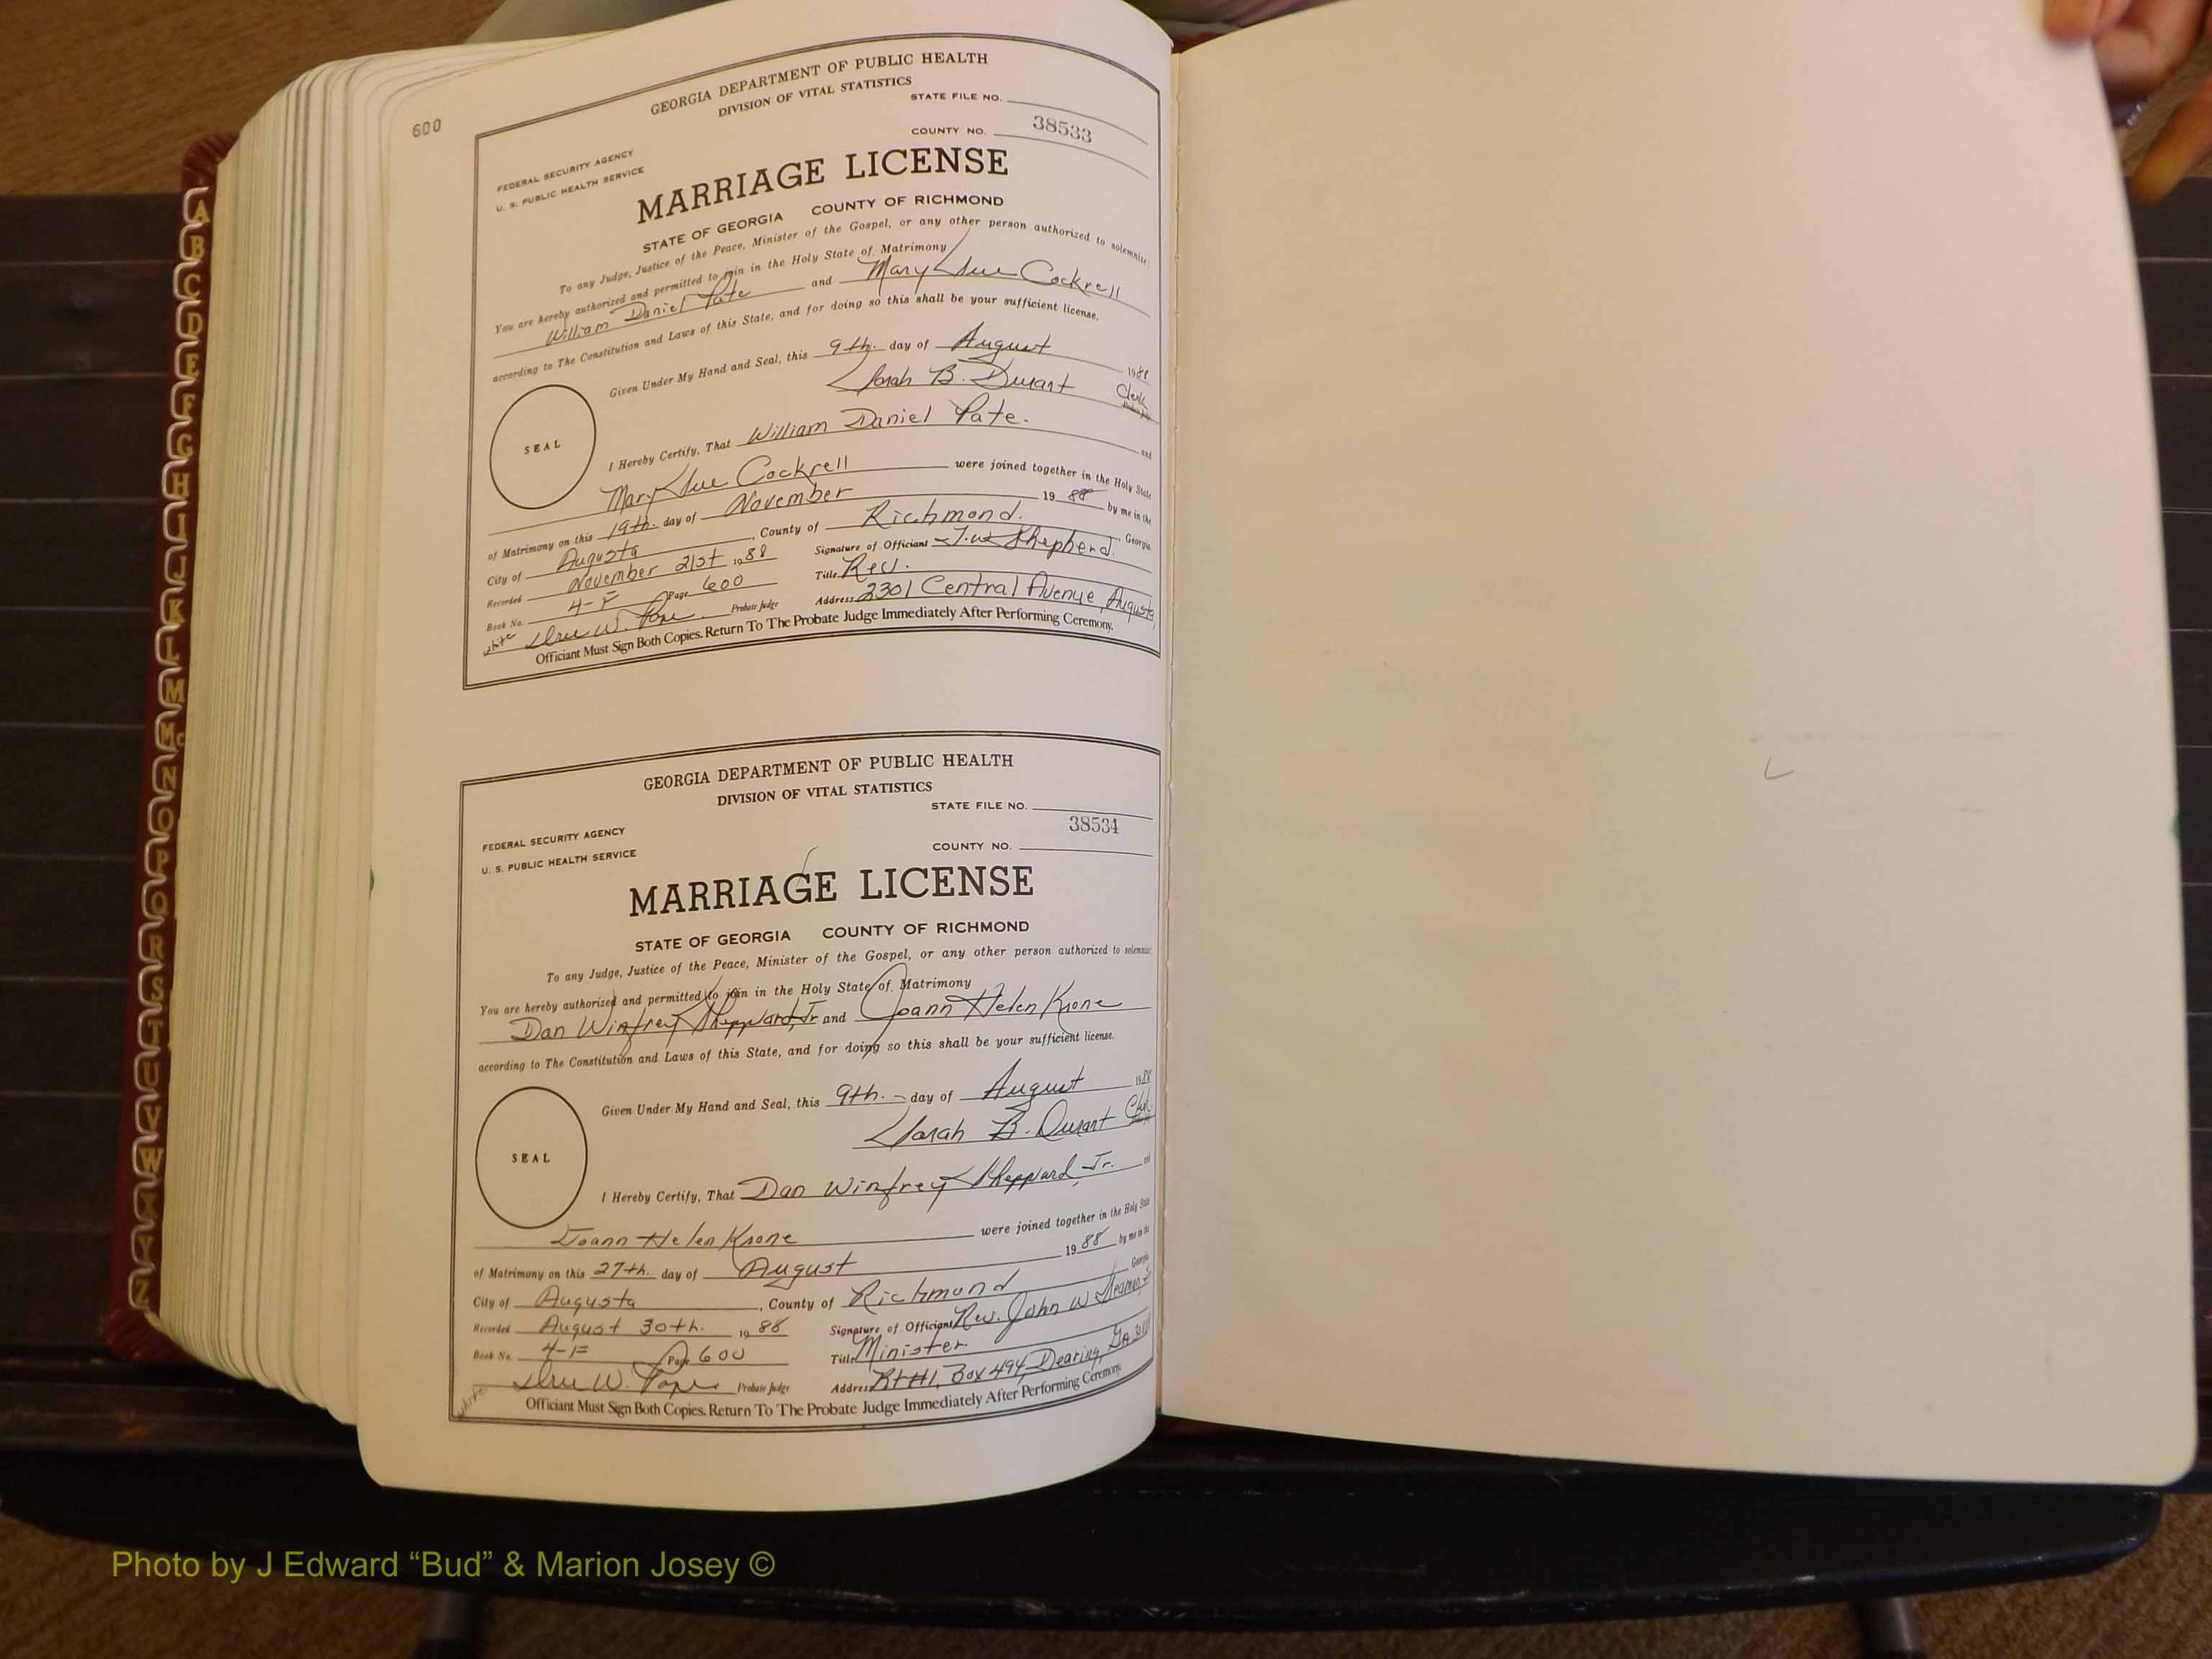 600
GEORGIA DEPARTMENT OF PUBLIC HEALTH
DIVISION OF VITAL STATISTICS
STATE FILE NO.
38533
COUNTY NO.
FEDERAL SECURITY AGENCY
U. S. PUBLIC HEALTH SERVICE
MARRIAGE LICENSE
STATE OF GEORGIA COUNTY OF RICHMOND
To any Judge, Justice of the Peace, Minister of the Gospel, or any other person authorized to solemnize:
You are hereby authorized and permitted to join in the Holy State of Matrimony
William Daniel Pate and Mary Sue Cockrell
according to The Constitution and Laws of this State, and for doing so this shall be your sufficient license.
Given Under My Hand and Seal, this 9th. day of August 1988
Sarah B. Durant Clerk
SEAL
I Hereby Certify, That William Daniel Pate. and
Mary Sue Cockrell were joined together in the Holy State
of Matrimony on this 19th. day of November 19 88 by me in the
City of Augusta, County of Richmond. Georgia
Recorded November 21st 1988 Signature of Officiant J.W. Shepherd
Book No. 4-F Page 600 Title Rev.
white Probate Judge Address 2301 Central Avenue, Augusta,
Officiant Must Sign Both Copies. Return To The Probate Judge Immediately After Performing Ceremony.
GEORGIA DEPARTMENT OF PUBLIC HEALTH
DIVISION OF VITAL STATISTICS
STATE FILE NO.
38534
COUNTY NO.
FEDERAL SECURITY AGENCY
U. S. PUBLIC HEALTH SERVICE
MARRIAGE LICENSE
STATE OF GEORGIA COUNTY OF RICHMOND
To any Judge, Justice of the Peace, Minister of the Gospel, or any other person authorized to solemnize:
You are hereby authorized and permitted to join in the Holy State of Matrimony
Dan Winfrey Sheppard, Jr. and Joann Helen Krone
according to The Constitution and Laws of this State, and for doing so this shall be your sufficient license.
Given Under My Hand and Seal, this 9th. day of August 1988
Sarah B. Durant Clerk
SEAL
I Hereby Certify, That Dan Winfrey Sheppard, Jr. and
Joann Helen Krone were joined together in the Holy State
of Matrimony on this 27th. day of August 19 88 by me in the
City of Augusta, County of Richmond Georgia
Recorded August 30th. 19 88 Signature of Officiant Rev. John W
Book No. 4-F Page 600 Title Minister
white Probate Judge Address Rt #1, Box 494, Dearing, GA
Officiant Must Sign Both Copies. Return To The Probate Judge Immediately After Performing Ceremony.
A
B
C
D
E
F
G
H
I
J
K
L
M
Mc
N
O
P
Q
R
S
T
U
V
W
X
Y
Z
Photo by J Edward “Bud” & Marion Josey ©